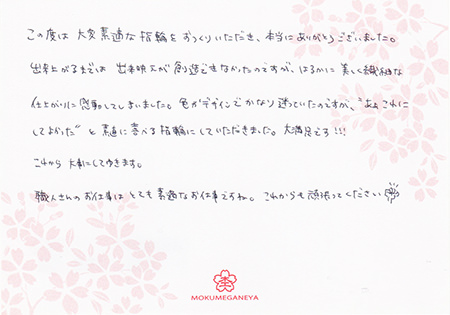 この度は 大変素適な指輪をおつくりいただき、本当にありがとうございました。
出来上がるまでは 出来映えが創造できなかったのですが、はるかに美しく繊細な
仕上がりに感動してしまいました。色やデザインでかなり迷っていたのですが、"あぁこれに
してよかった"と素直に喜べる指輪にしていただきました。大満足です!!!
これから大事にしてゆきます。
職人さんのお仕事はとても素適なお仕事ですね。これからも頑張ってください
MOKUMEGANEYA